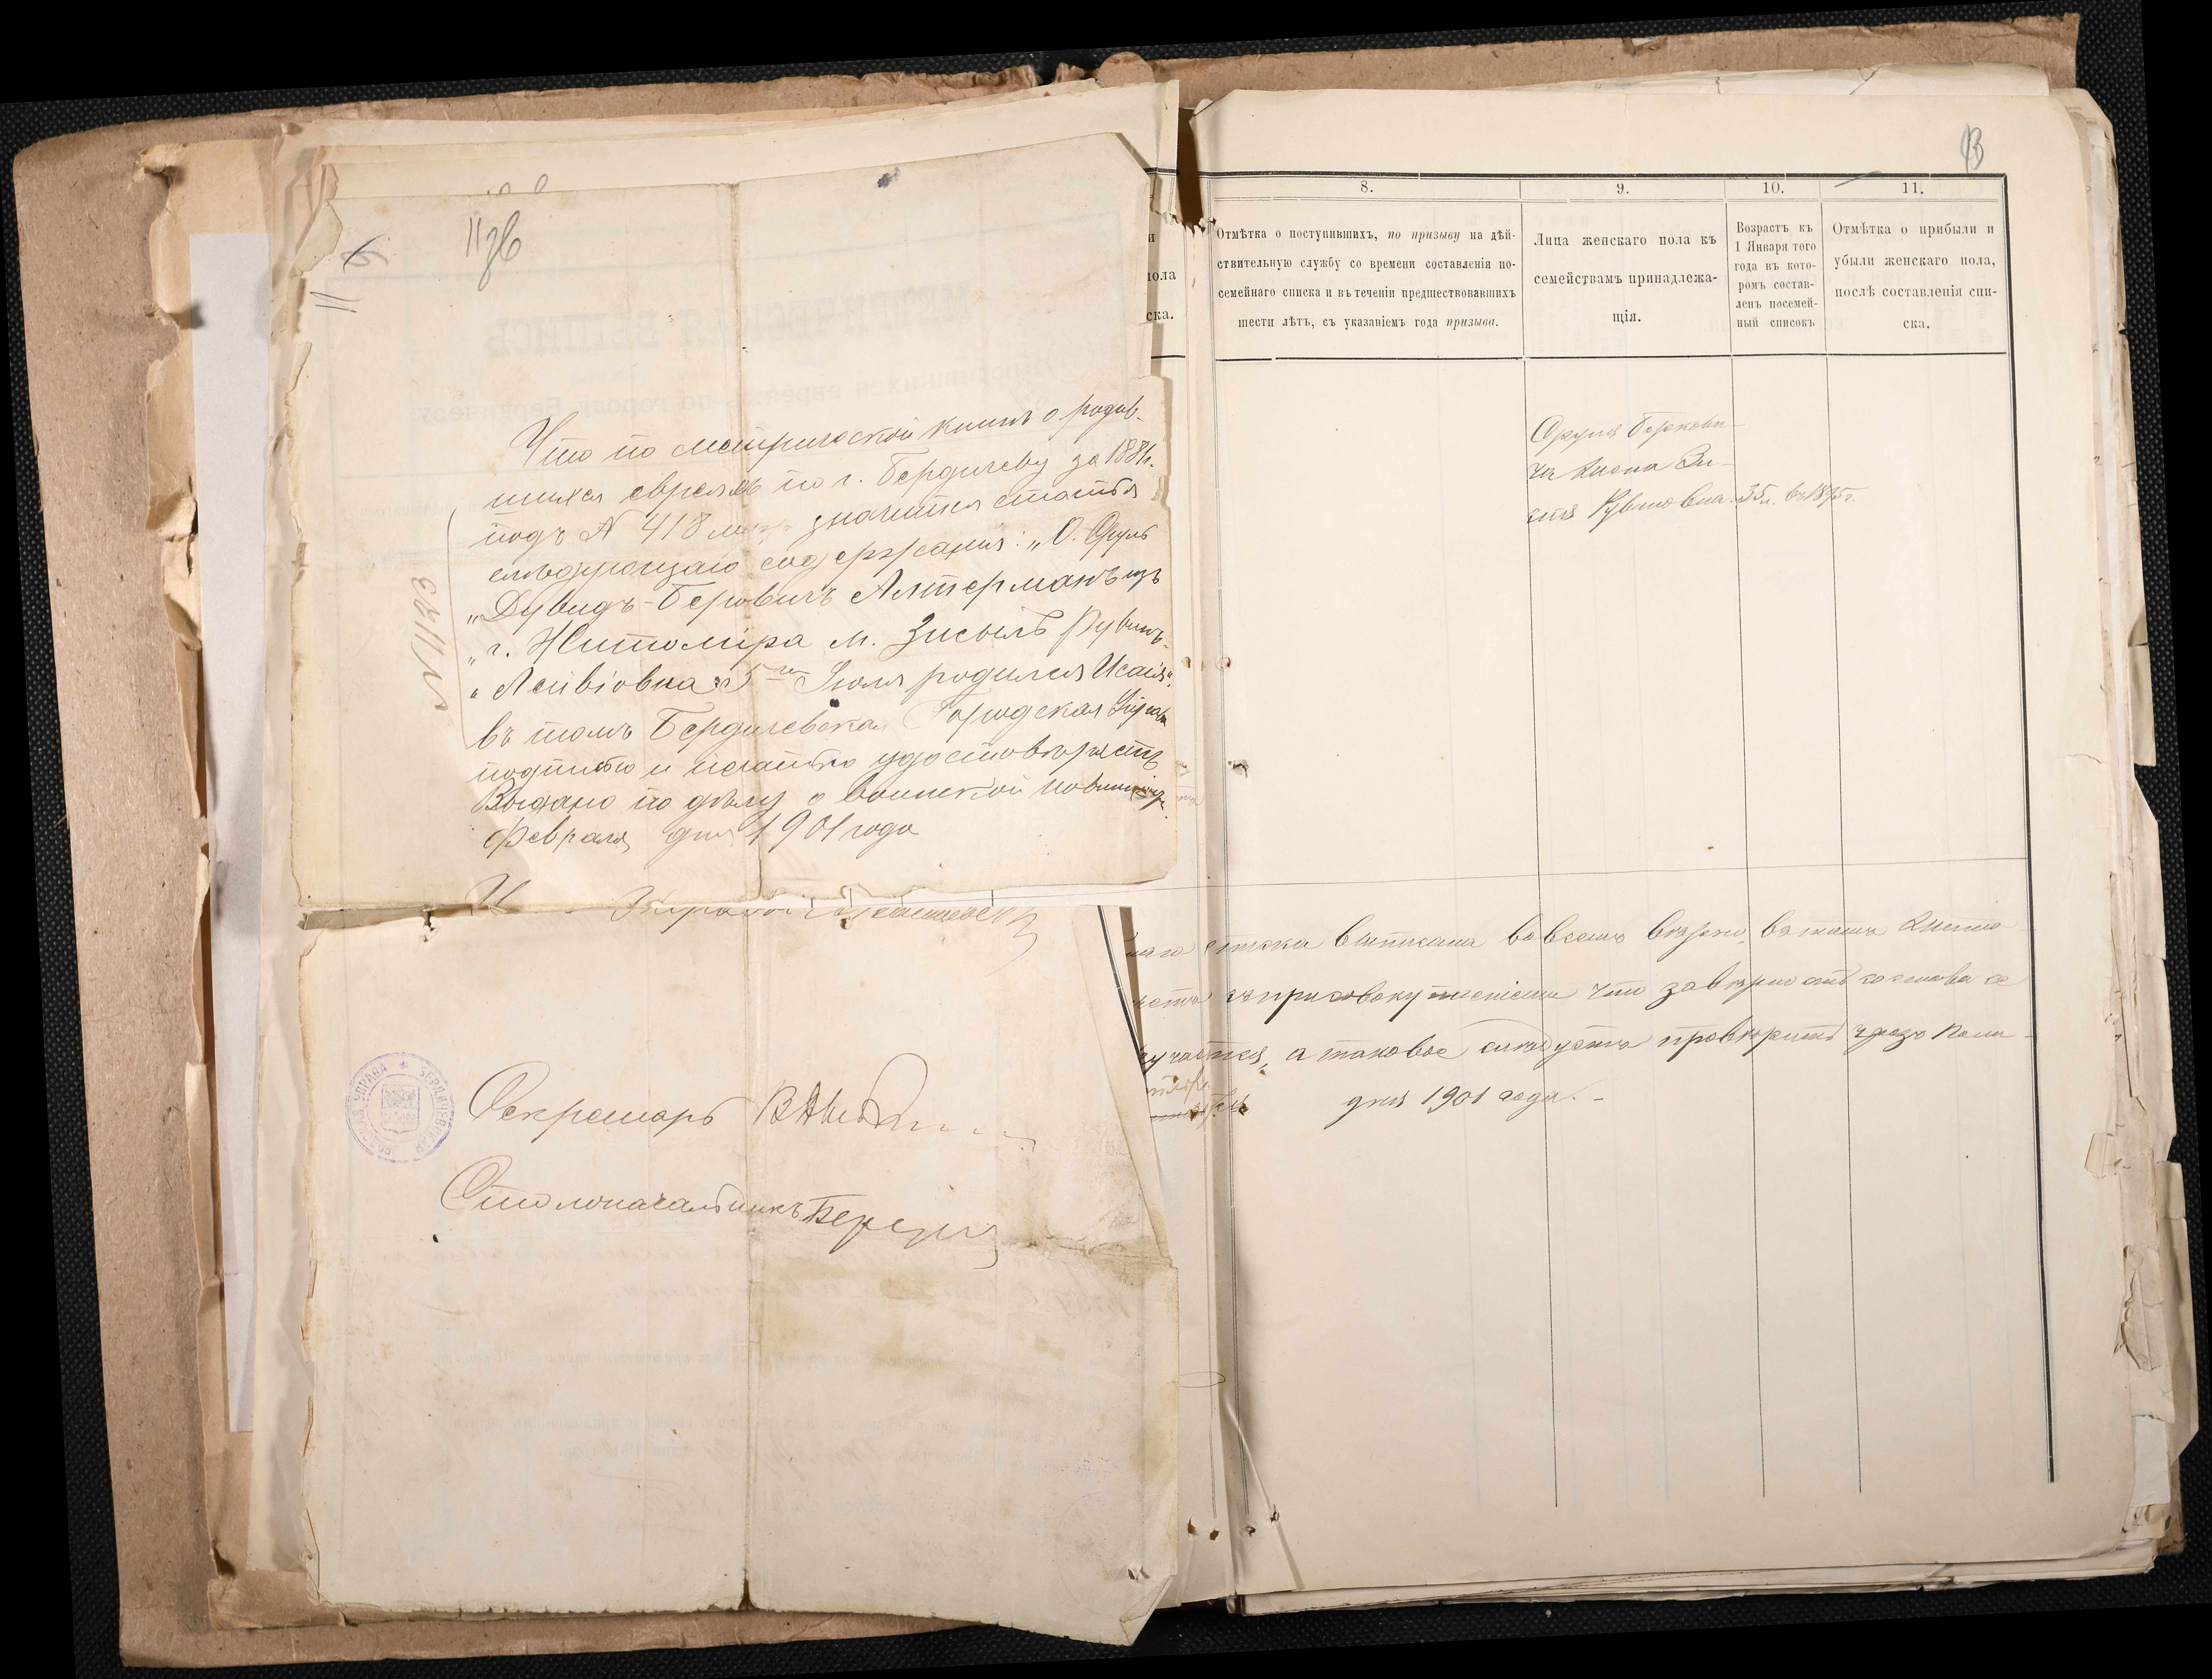 11 об
11
Что по метрической книге о родив-
шихся евреяхъ по г. Бердичеву за 1881 г.
подъ № 418 муж. значится статья
слѣдующаго содержанія: „О. Сруль
„Дувидъ-Беровичъ Алтерманъ изъ
„г. Житоміра м. Зисыль Рувинъ-
„Лейвіовна 5го Іюля родился Исаія".
въ томъ Бердичевская Городская Управа
подписью и печатью удостовѣряетъ
Выдано по дѣлу о воинской повинности
Февраля дня 1901 года
№ 1123
Секретарь
Столоначальникъ
БЕРДИЧЕВСКАЯ ГОРОДСКАЯ УПРАВА
и
пола
ска.
13
8.
9.
10.
11.
Отмѣтка о поступившихъ, по призыву на дѣй-
ствительную службу со времени составленія по-
семейнаго списка и въ теченіи предшествовавшихъ
шести лѣтъ, съ указаніемъ года призыва.
Лица женскаго пола къ
семействамъ принадлежа-
щія.
Возрастъ къ
1 Января того
года въ кото-
ромъ состав-
ленъ посемей-
ный списокъ
Отмѣтка о прибыли и
убыли женскаго пола,
послѣ составленія спи-
ска.
Сруля Беркови-
ча жена Зи-
сля Рувиновна 35 л. въ 1875 г.
списка выписана во всемъ вѣрно, въ томъ
что за вѣрность состава се
а таковое слѣдуетъ провѣрить чрезъ Поли-
дня 1901 года. -